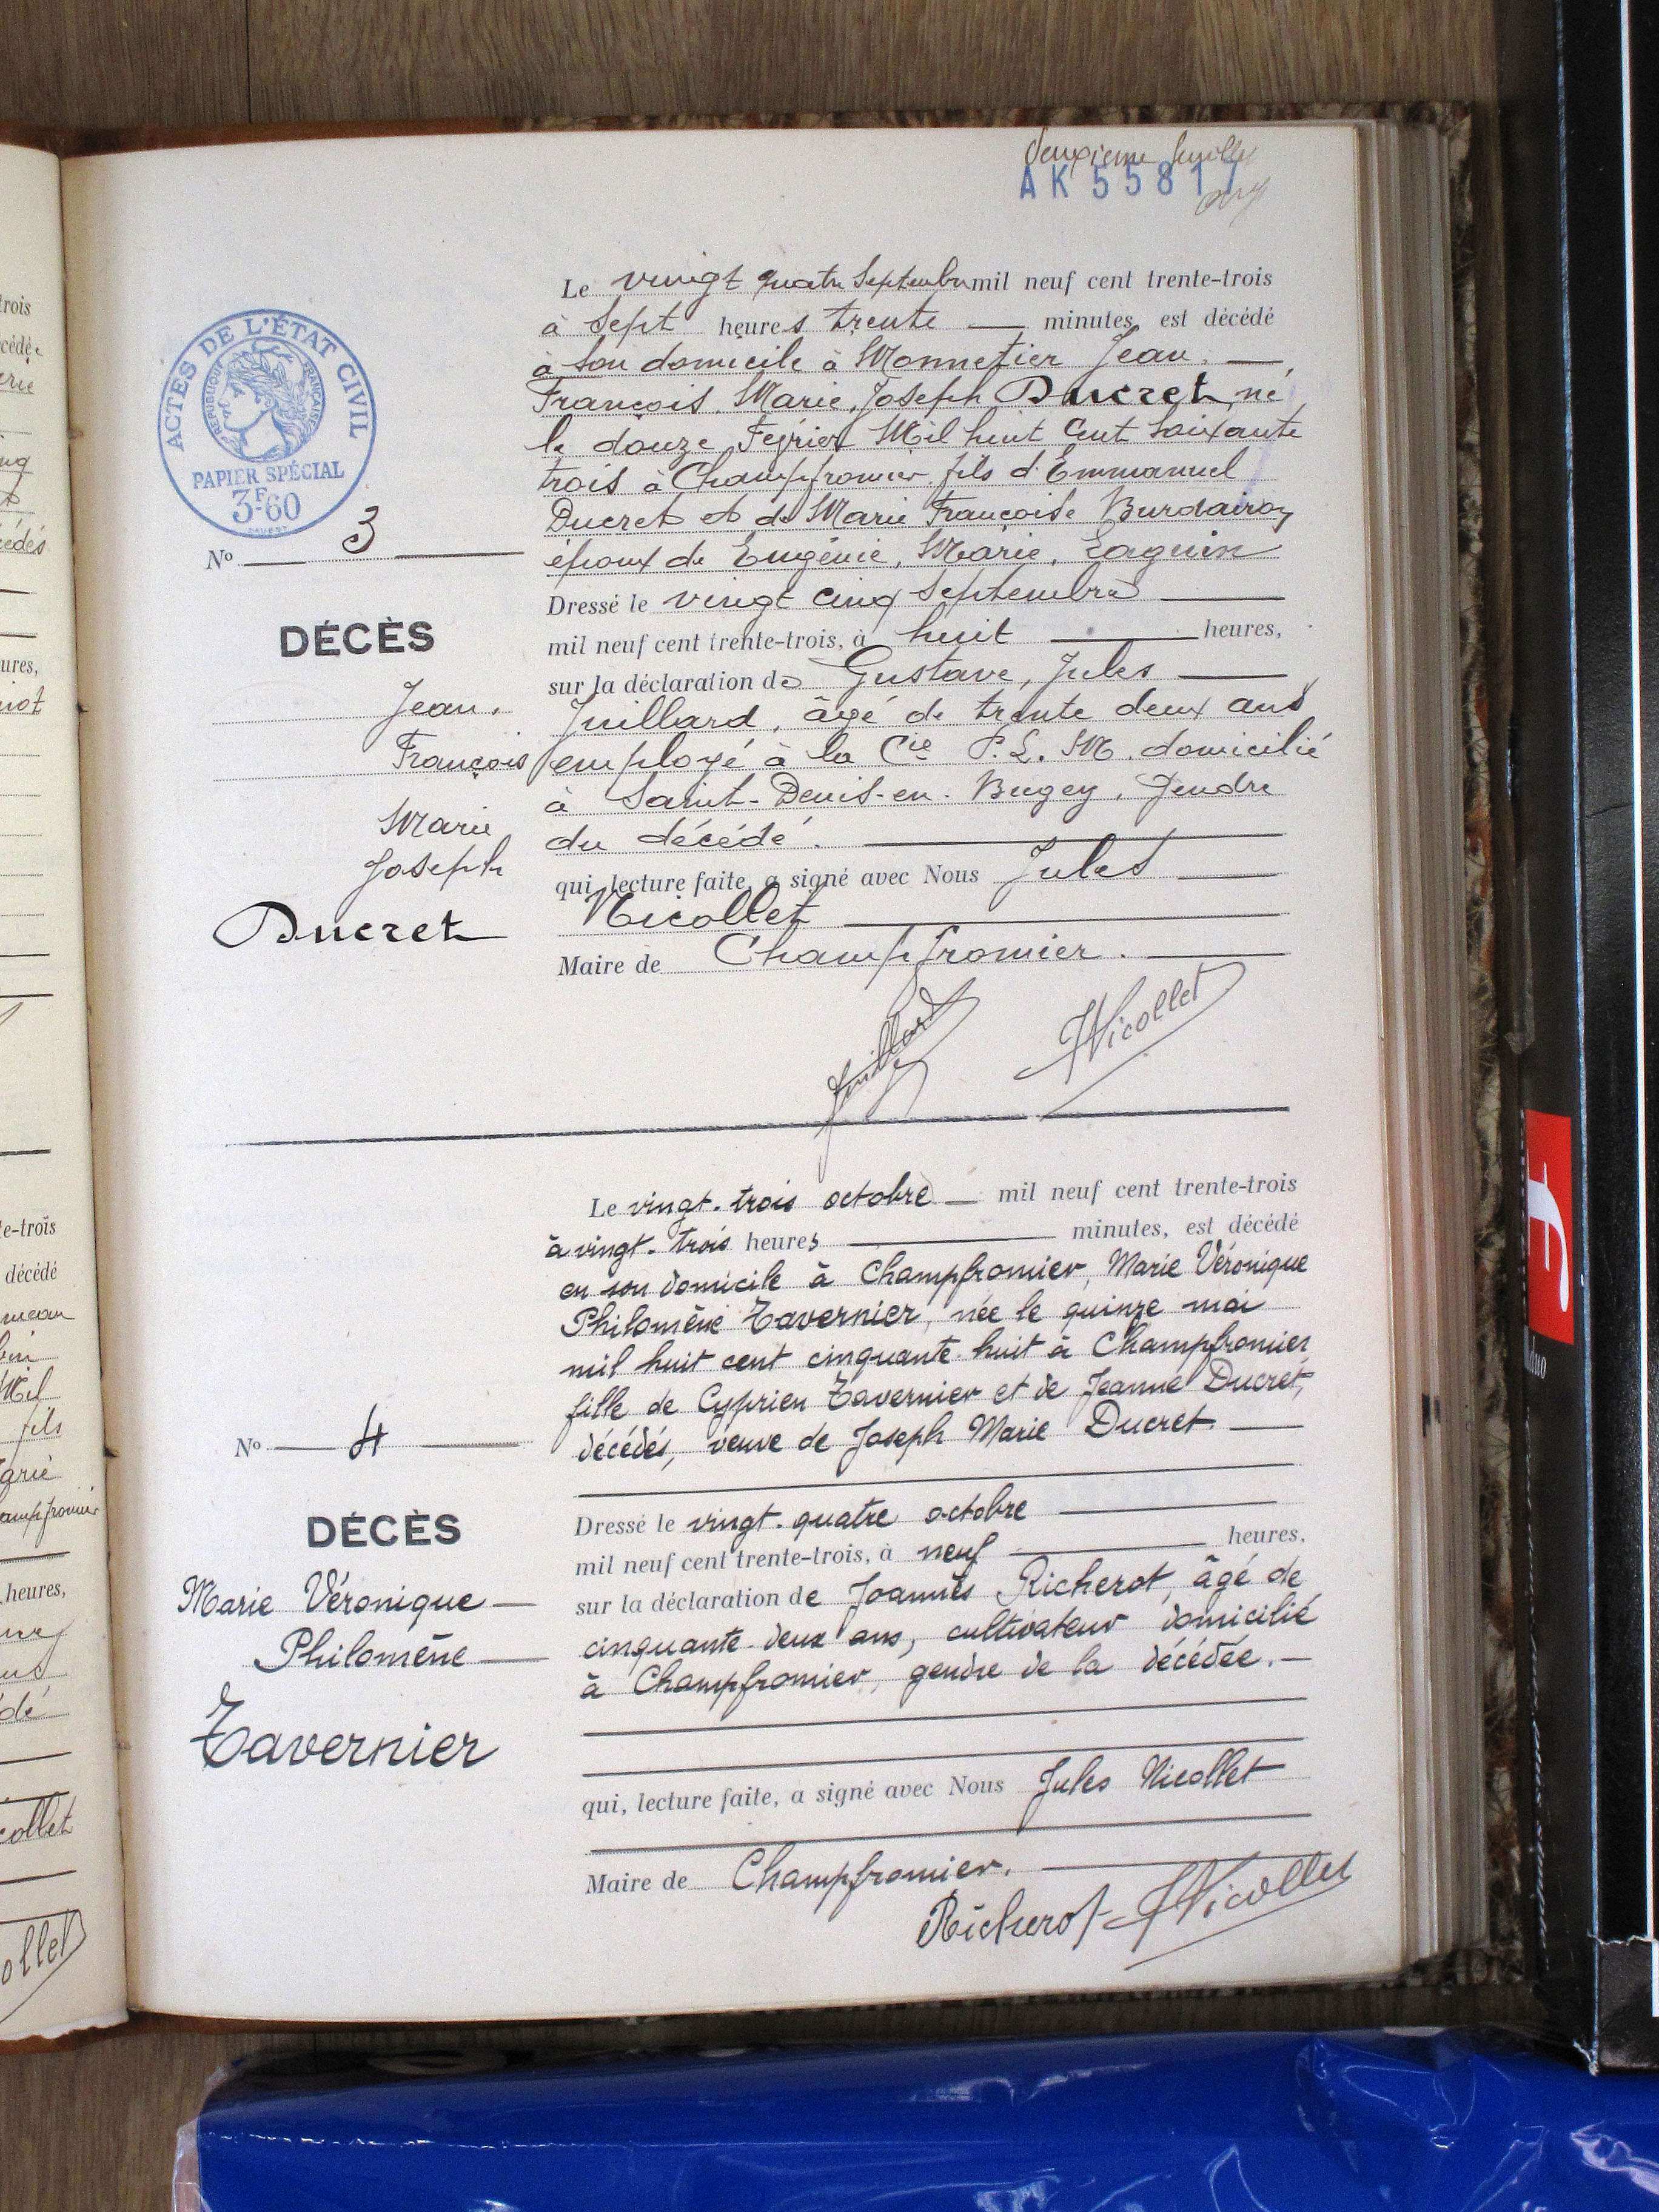 deuxième feuillet
AK55817
Le vingt quatre Septembre mil neuf cent trente-trois
à Sept heures trente — minutes, est décédé
à son domicile à Monnetier Jean. —
François. Marie. Joseph Ducret, né
le douze Février Mil huit Cent Soixante
trois à Champfromier fils d'Emmanuel
Ducret et de Marie Françoise Burdairon
époux de Eugénie, Marie, Laguin
Dressé le vingt cinq Septembre —
mil neuf cent trente-trois, à huit — heures,
sur la déclaration de Gustave, Jules —
Juillard, âgé de trente deux ans
employé à la Cie P. L. M. domicilié
à Saint-Denis-en-Bugey, Gendre
du décédé. —
qui, lecture faite, a signé avec Nous Jules —
Nicollet —
Maire de Champfromier. —
Juillard
JNicollet
ACTES DE L'ÉTAT CIVIL
RÉPUBLIQUE FRANÇAISE
PAPIER SPÉCIAL
3F60
No 3
DÉCÈS
Jean.
François
Marie
Joseph
Ducret
Le vingt-trois octobre — mil neuf cent trente-trois
à vingt-trois heures — minutes, est décédé
en son domicile à Champfromier, Marie Véronique
Philomène Tavernier, née le quinze mai
mil huit cent cinquante-huit à Champfromier
fille de Cyprien Tavernier et de Jeanne Ducret,
décédés, veuve de Joseph Marie Ducret. —
Dressé le vingt-quatre octobre —
mil neuf cent trente-trois, à neuf — heures,
sur la déclaration de Joannès Richerot, âgé de
cinquante-deux ans, cultivateur domicilié
à Champfromier, gendre de la décédée. —
qui, lecture faite, a signé avec Nous Jules Nicollet
Maire de Champfromier. —
Richerot
JNicollet
No 4
DÉCÈS
Marie Véronique —
Philomène —
Tavernier